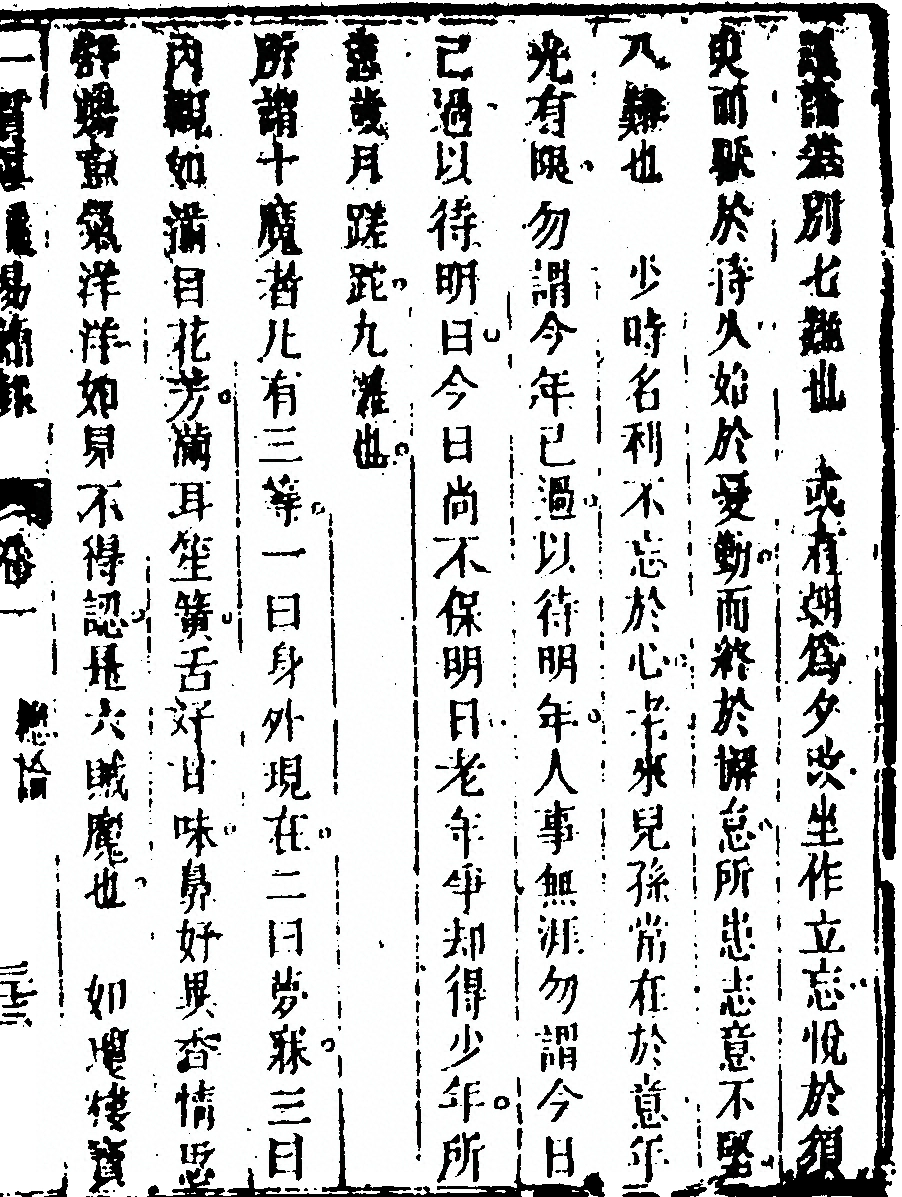 議論差別七難也　或有朝爲夕改坐作立忘悅於須
臾而厭於待久始於憂勤而終於懈怠所患志意不堅
八難也　少時名利不忘於心老來兒孫常在於意年
光有限勿謂今年已過以待明年人事無涯勿謂今日
已過以待明日今日尚不保明日老年爭却得少年所
患歲月蹉跎九難也
所謂十魔者凡有三等一曰身外現在二曰夢寐三曰
內觀如滿目花芳滿耳笙簧舌好甘味鼻好異香情思
舒暢意氣洋洋如見不得認是六賊魔也　如瓊樓寶
卷一
總論